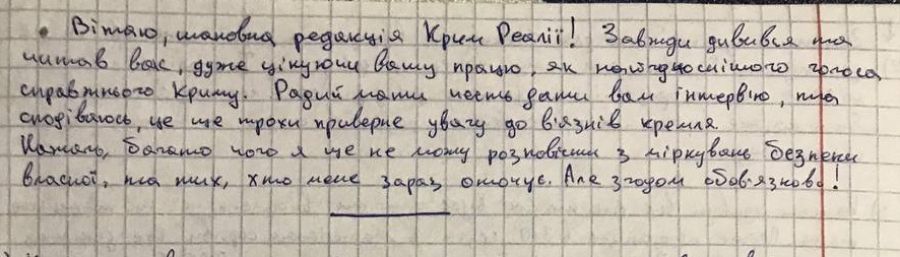 • Вітаю, шановна редакція Крим Реалії! Завжди дивився та
читав вас, дуже цінуючи вашу працю, як найгіднішого голоса
справжнього Криму. Радий мати честь дати вам інтерв'ю, та
сподіваюсь, це ще трохи приверне увагу до в'язнів кремля.
На жаль, багато чого я ще не можу розповісти з міркувань безпеки
власної, та тих, хто мене зараз оточує. Але згодом обов'язково!